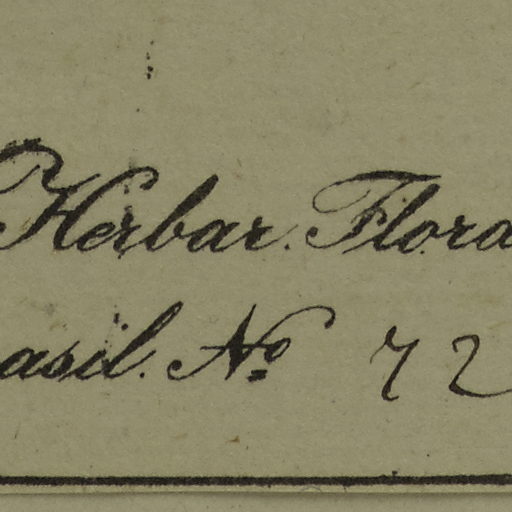 Herbar. Flora
asil. No 72